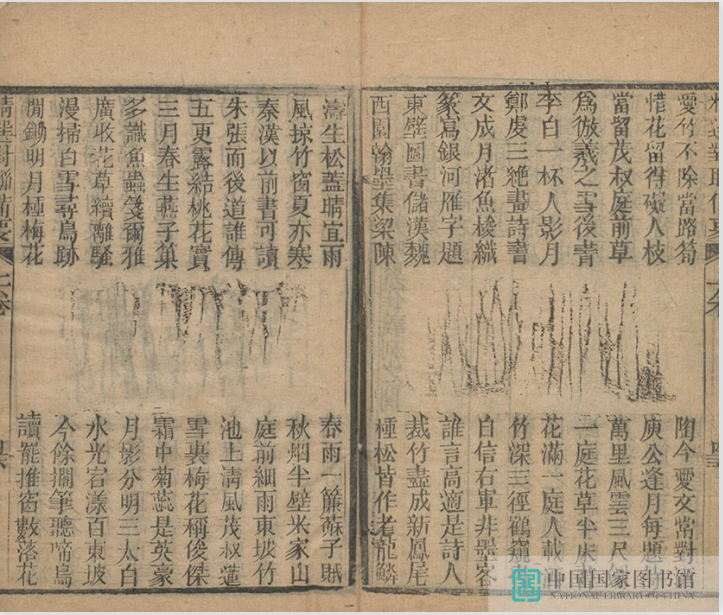 愛竹不除當路筍
惜花留得礙人枝
當留茂叔庭前草
爲倣羲之雪後書
李白一杯人影月
鄭虔三絕畫詩書
文成月渚魚梭織
篆寫銀河雁字題
東壁圖書儲漢魏
西園翰墨集梁陳
陶令愛文常對
庾公逢月每題
萬里風雲三尺
一庭花草半床
花滿一庭人載
竹深三徑鶴窺
自信右軍非墨客
誰言高適是詩人
裁竹盡成新鳳尾
種松皆作老龍鱗
濤生松蓋晴宜雨
風掠竹窗夏亦寒
秦漢以前書可讀
朱張而後道誰傳
五更露結桃花實
三月春生燕子巢
多識魚蟲箋爾雅
廣收花草續離騷
漫掃白雪尋鳥跡
閒鋤明月種梅花
春雨一簾蘇子賦
秋烟半壁米家山
庭前細雨東坡竹
池上清風茂叔蓮
雪裏梅花稱俊傑
霜中菊蕊是英豪
月影分明三太白
水光宕漾百東坡
今餘擱筆聽啼鳥
讀罷推窗數落花
上卷
中国国家图书馆
NATIONAL LIBRARY OF CHINA